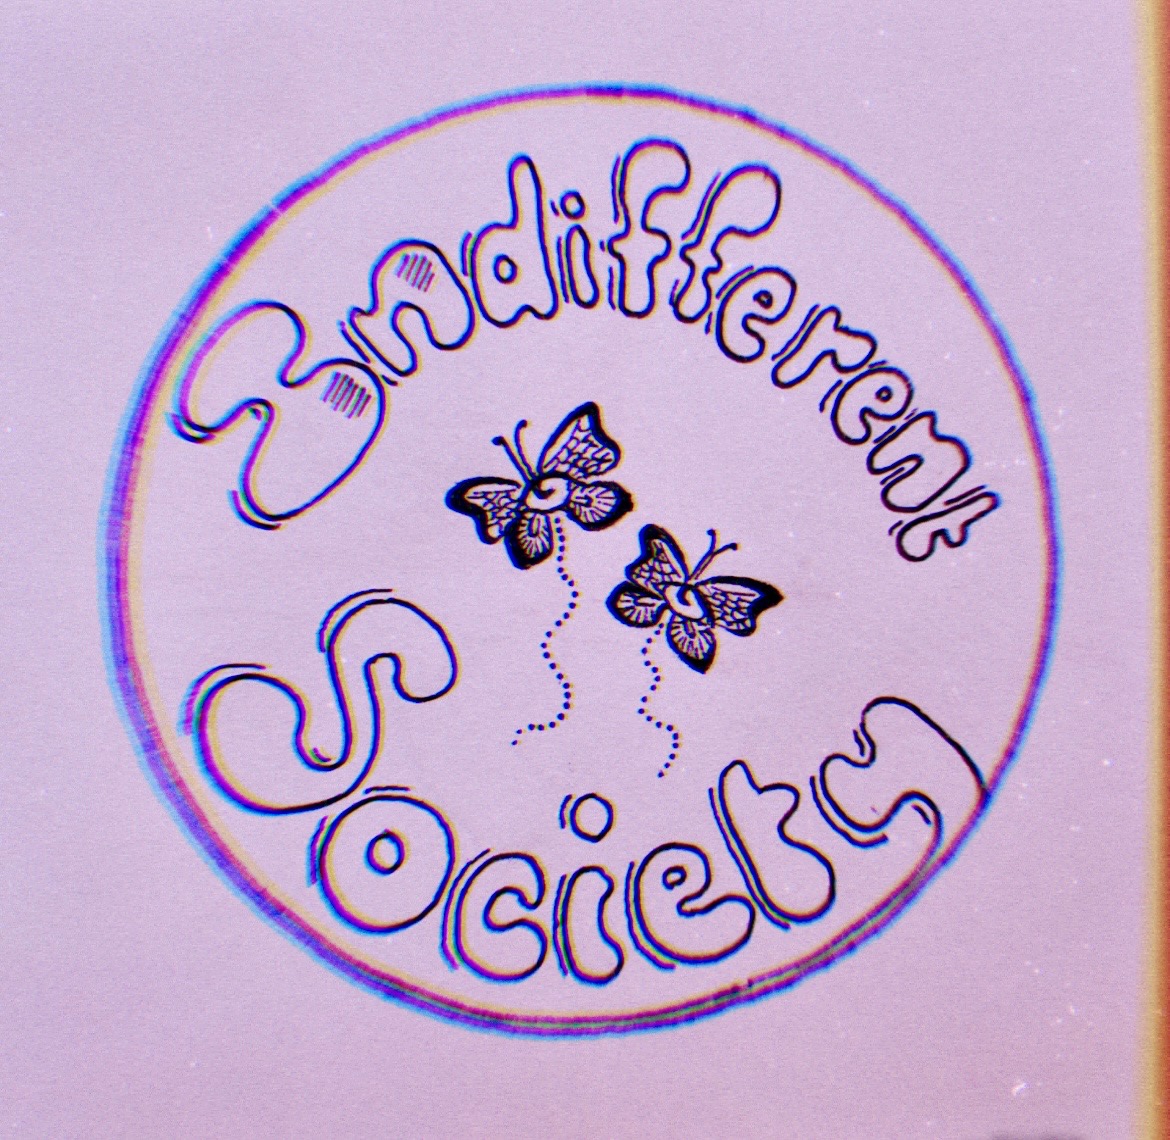 Indifferent
Society